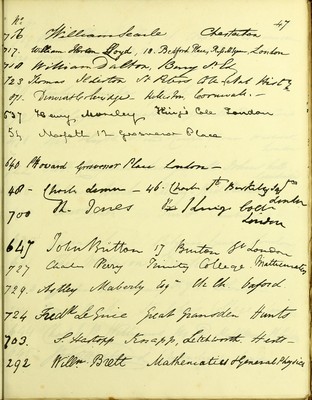 47
No.
716 William Searle Chesterton
717. William Horton Lloyd, 10. Bedford Place, Russell Sqr, London
718 William Dalton, Bury St Ed
723 Thomas Ilderton St Peters
Vincent Coleridge Helleston, Cornwall. -
637 Henry Moseley King's Coll London
54 12 Grosvenor Place
640 Howard Grosvenor Place London -
48 - Charles - 46. Charles St Berkeley Sqre London
700 Th. Jones Kings Coll London
647 John Britton 17 Burton St London
727 Charles Perry Trinity College. Mathematics
729. Astley Maberly Esqr Ch. Ch. Oxford
724 Fredk Le Grice Great Gransden Hunts
703. S. Hartopp Knapp, Letchworth. Herts -
292 Willm. Brett Mathematics & General Physics